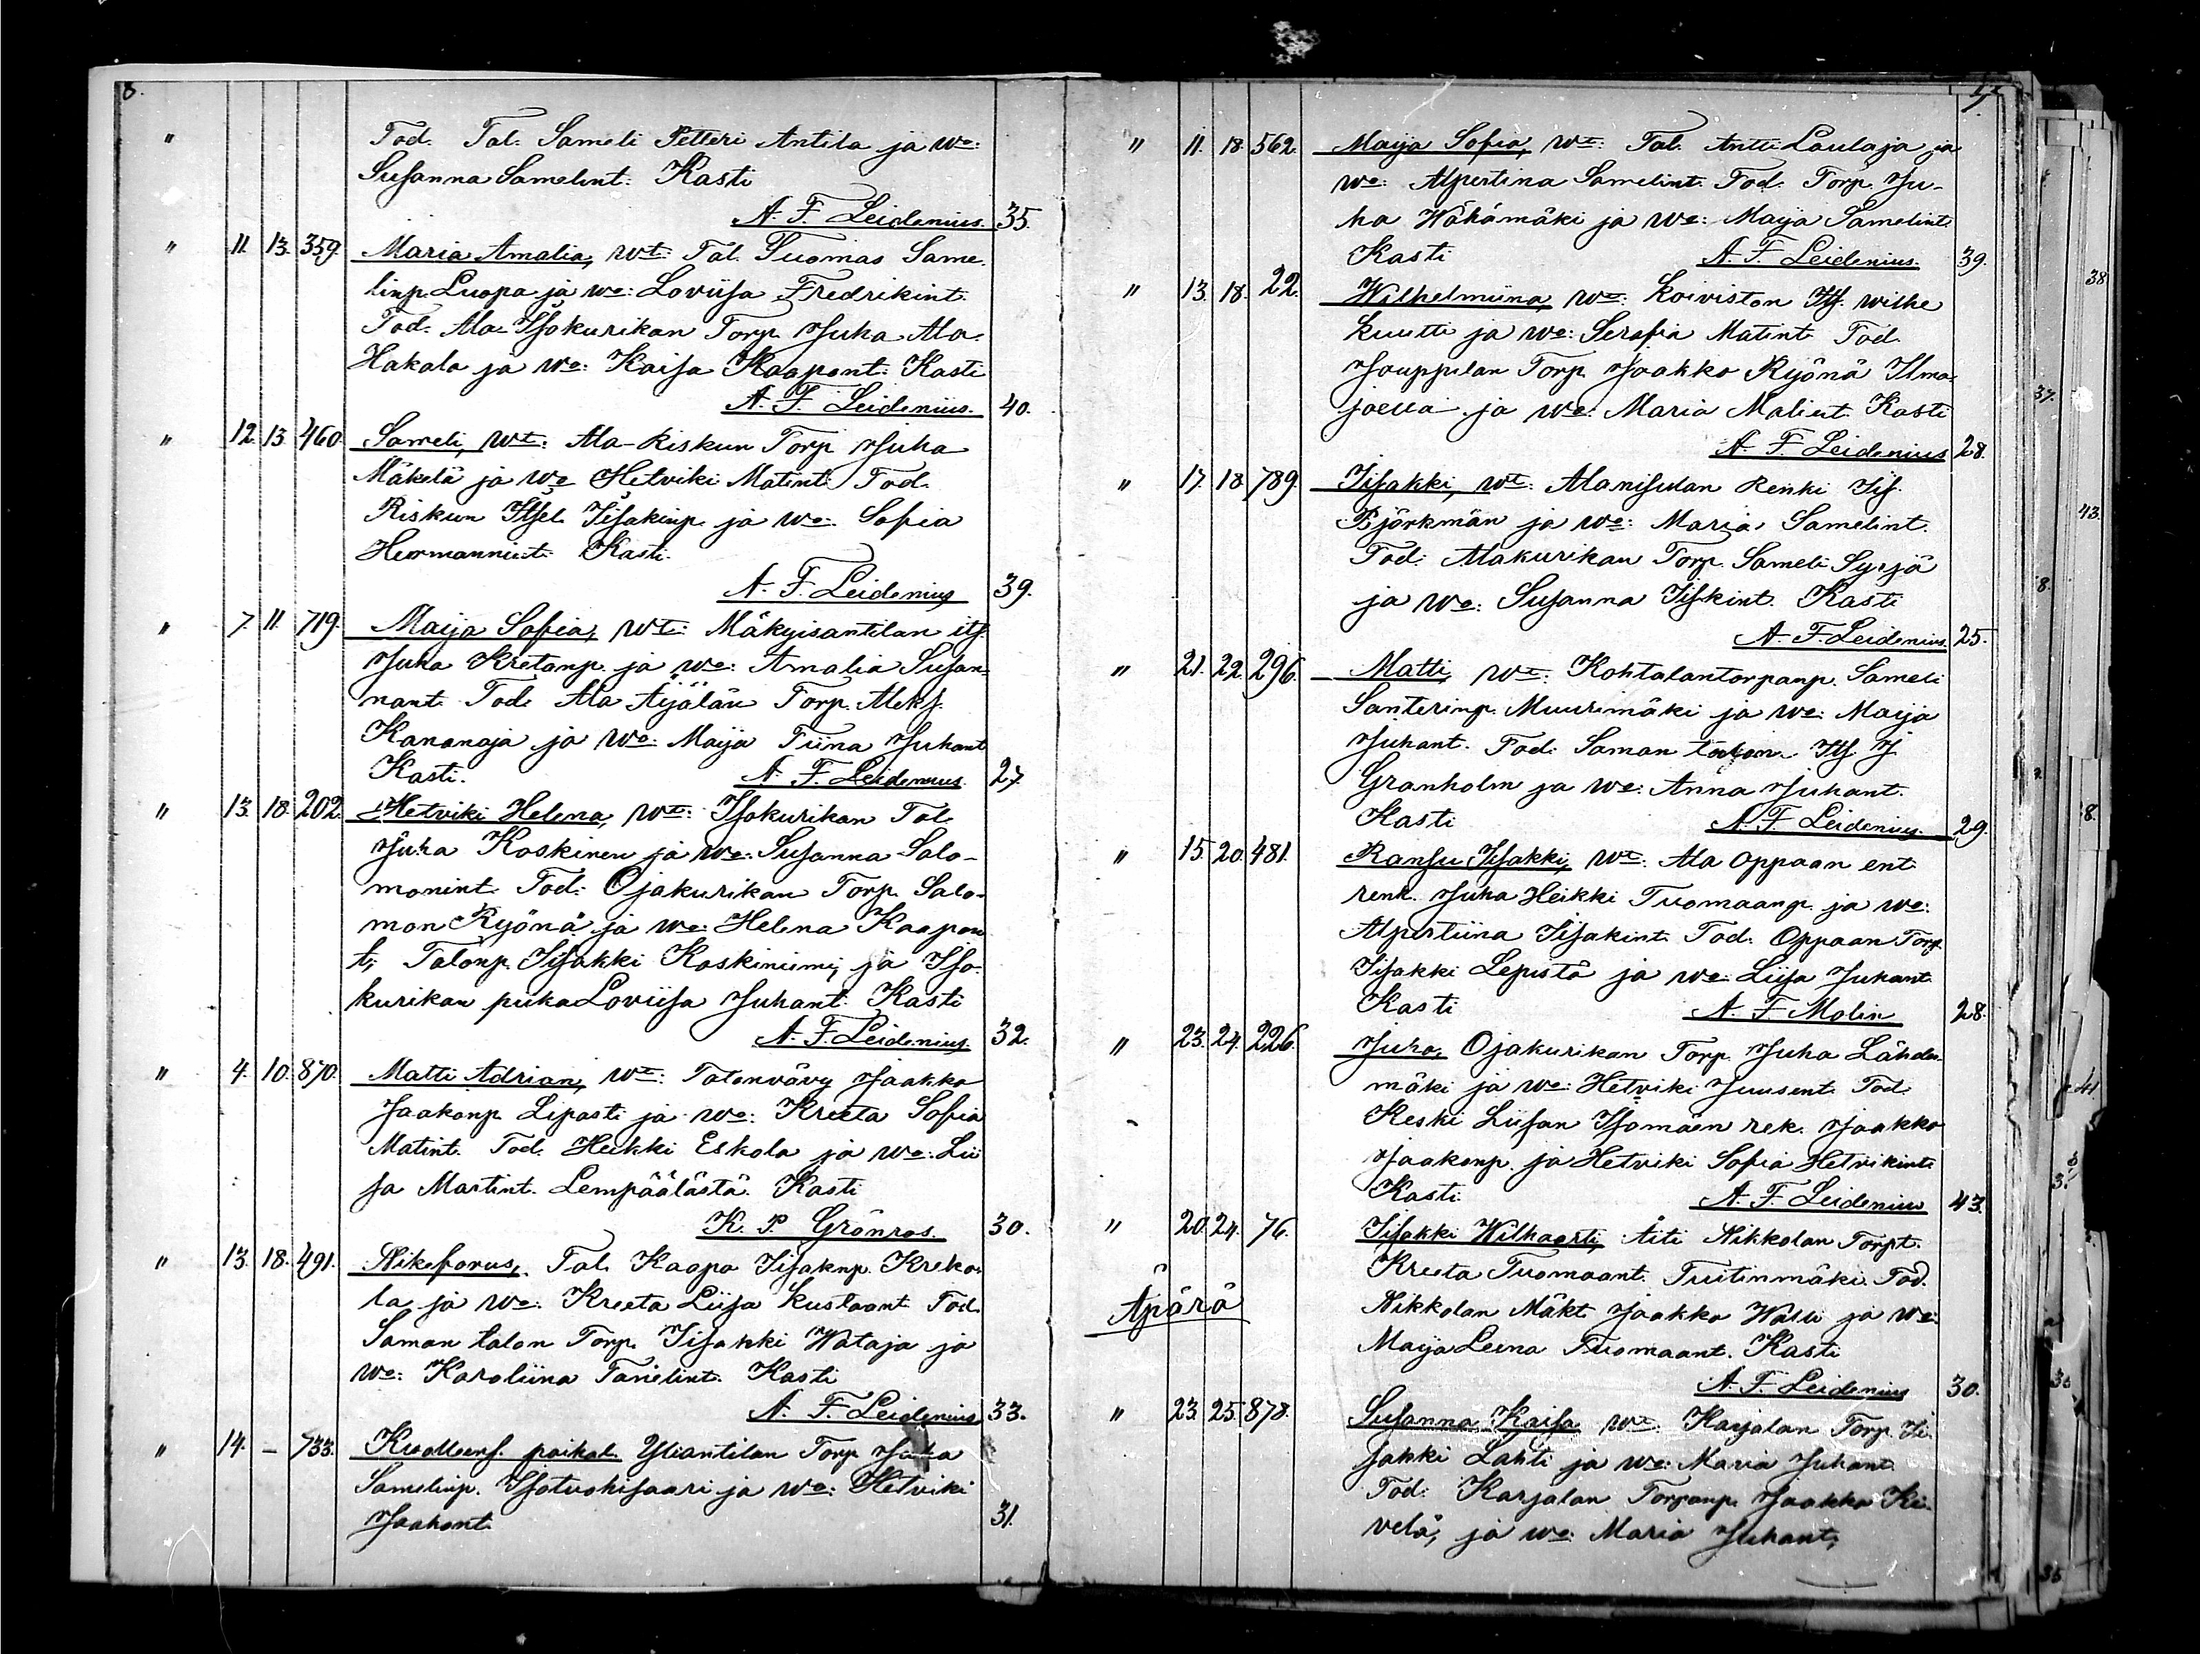 8.
" Tod. Tal. Sameli Petteri Antila ja wo:
Susanna Samelint. Kasti
A. F. Leidenius. 35.
" 11. 13. 359. Maria Amalia, wt: Tal. Tuomas Same-
linp. Luopa ja wo: Loviisa Fredrikint.
Tod. Ala-Isokurikan Torp. Juha Ala-
Hakala ja wo: Kaisa Kaapont. Kasti
A. F. Leidenius. 40.
" 12. 13. 460. Sameli, wt: Ala-Riskun Torp Juha
Mäkelä ja wo Hetviki Matint. Tod.
Riskun Itsel. Iisakinp. ja wo: Sofia
Hermannint. Kasti.
A. F. Leidenius 39.
" 7. 11. 719. Maija Sofia, wt: Mäkyisantilan its.
Juha Kretanp. ja wo: Amalia Susan-
nant. Tod. Ala Äijälän Torp. Aleks.
Kananoja ja wo: Maija Tiina Juhant
Kasti. A. F. Leidenius. 27.
" 13. 18. 202. Hetviki Helena, wt: Isokurikan Tal.
Juha Koskinen ja wo: Susanna Salo-
monint. Tod: Ojakurikan Torp. Salo-
mon Ryönä ja wo: Helena Kaapon
t; Talonp. Iisakki Koskiniemi, ja Iso-
kurikan piika Loviisa Juhant. Kasti
A. F. Leidenius. 32.
" 4. 10. 870. Matti Adrian, wt: Talonvävy Jaakko
Jaakonp. Lipasti ja wo: Kreeta Sofia
Matint. Tod. Heikki Eskola ja wo: Lii
sa Martint. Lempäälästä. Kasti
K. P. Grönros. 30.
" 13. 18. 491. Nikeforus, Tal. Kaapo Iisaknp. Kreko-
la ja wo: Kreeta Liisa Kustaant Tod.
Saman talon Torp. Iisakki Wataja ja
wo: Karoliina Tanelint. Kasti
A. F. Leidenius 33.
" 14. – 733. Kuolleens. poikal. Yliantilan Torp Juha
Samelinp. Isotuohisaari ja wo: Hetviki
Jaakont. 31.
9.
" 11. 18. 562. Maija Sofia, wt: Tal. Antti Laulaja ja
wo: Alpertina Samelint. Tod. Torp. Ju-
ha Wähämäki ja wo: Maija Samelint
Kasti A. F. Leidenius. 39.
" 13. 18. 22. Wilhelmiina, wt: Koiviston Its. Wilhe
Kuutti ja wo: Serafia Matint Tod.
Jouppilan Torp. Jaakko Ryönä Ilma-
joella ja wo: Maria Malint. Kasti
A. F. Leidenius 28.
" 17. 18. 789. Iisakki, wt: Alanisulan Renki Iis.
Pjörkmän ja wo: Maria Samelint.
Tod: Alakurikan Torp. Sameli Syrjä
ja wo: Susanna Iiskint. Kasti
A. F. Leidenius. 25.
" 21. 22. 296. Matti, wt: Kohtalantorpanp. Sameli
Santerinp. Muurimäki ja wo: Maija
Juhant. Tod: Saman talon Its. J
Granholm ja wo: Anna Juhant.
Kasti A. F. Leidenius. 29.
" 15. 20. 481. Ransu Iisakki, wt: Ala Oppaan ent
renk. Juha Heikki Tuomaanp. ja wo:
Alpertiina Iisakint. Tod: Oppaan Torp.
Iisakki Lepistö ja wo: Liisa Juhant
Kasti A. F. Molin 28.
" 23. 24. 226. Juha, Ojakurikan Torp. Juha Lähden-
mäki ja wo: Hetviki Juusent. Tod
Keski Liisan Isomäen rek. Jaakko
Jaakonp. ja Hetviki Sofia Hetvikint.
Kasti A. F. Leidenius 43.
" 20. 24. 76. Iisakki Wilhaarti, Äiti Nikkolan Torpt.
Kreeta Tuomaant. Tuitinmäki. Tod.
Äpärä Nikkolan Mäkt Jaakko Walli ja wo:
Maija Leena Tuomaant. Kasti
A. F. Leidenius 30.
" 23. 25. 878. Susanna Kaisa wt. Karjalan Torp. Ii-
sakki Lahti ja wo: Maria Juhant
Tod: Karjalan Torpanp. Jaakko Ki-
velä, ja wo: Maria Juhant,